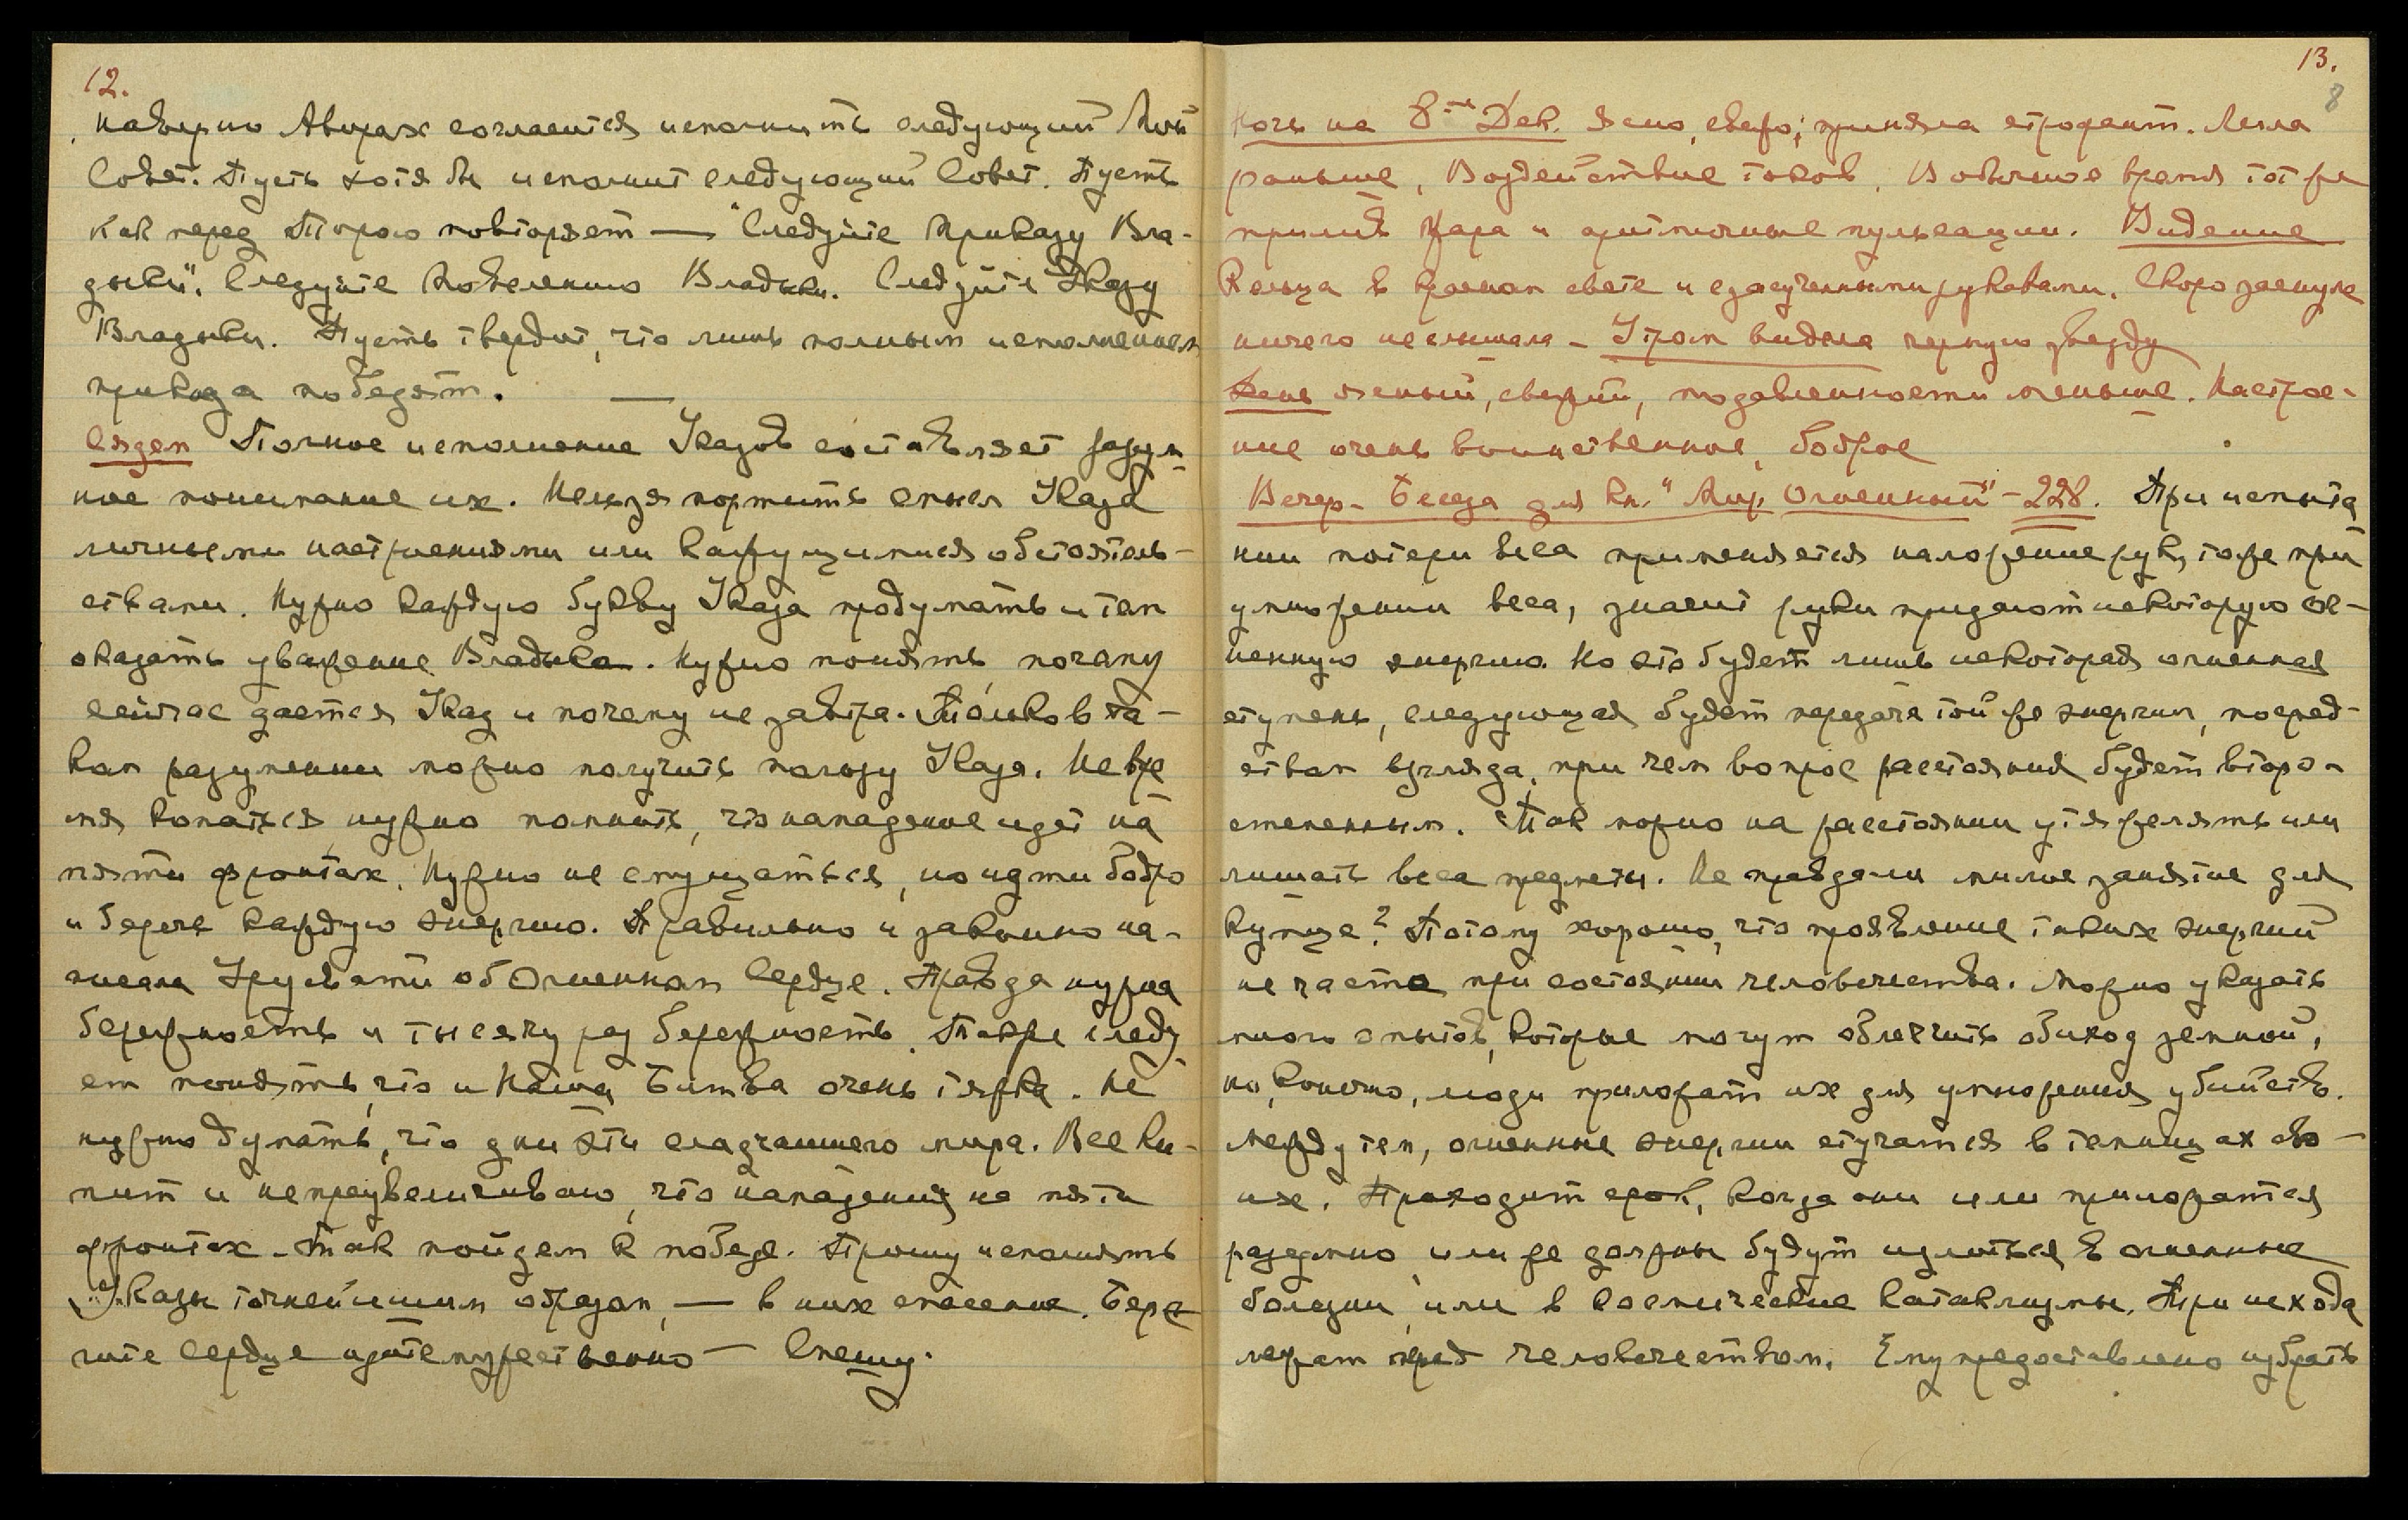 12.
наверно Авирах согласится исполнить следующий Мой
Совет. Пусть хотя бы исполнит следующий Совет. Пусть
как перед Торою повторяет — "Следуйте Приказу Вла-
дыки". Следуйте Повелению Владыки. Следуйте Указу
Владыки. Пусть твердит, что лишь полным исполнением
приказа победят. —
Сядем Полное исполнение Указов составляет разум-
ное понимание их. Нельзя портить смысл Указа
личными настроениями или кажущимися обстоятель-
ствами. Нужно каждую букву Указа продумать и тем
оказать уважение Владыке. Нужно понять, почему
сейчас дается Указ и почему не завтра. Только в та-
ком разумении можно получить пользу Указа. Не вре
мя копаться, нужно помнить, что нападение идет на
пяти фронтах. Нужно не смущаться, но идти бодро
и беречь каждую энергию. Правильно и законно на-
писала Урусвати об Огненном Сердце. Правда нужна
бережность и тысячу раз бережность. Также следу
ет понять, что и Наша Битва очень тяжка. Не
нужно думать, что дни эти сладчайшего мира. Все ки-
пит и не преувеличиваю, что нападения на пяти
фронтах. Так пойдем к победе. Прошу исполнять
Указы точнейшим образом, — в них спасение. Бере
гите сердце идите мужественно — Спешу.
13.
8
Ночь на 8ое Дек. Ясно, свежо; приняла строфант. Легла
раньше, Воздействие токов. В обычное время тот же
прилив жара и аритмичные пульсации. Видение
Кольца в красном свете и с засученными рукавами. Скоро заснула
ничего не слышала - Утром видела черную звезду
День ясный, свежий, подавленности меньше. Настрое-
ние очень воинственное, бодрое
Вечер - Беседа для кн. "Мир Огненный" - 228. При испыта
нии потери веса применяется наложение рук, то же при
умножении веса, значит руки придают некоторую ог-
ненную энергию. Но это будет лишь некоторая огненная
ступень, следующая будет передача той же энергии, посред-
ством взгляда, при чем вопрос расстояния будет второ-
степенным. Так можно на расстоянии утяжелять или
лишать веса предметы. Не правда ли милое занятие для
купца? Потому хорошо, что проявление таких энергий
не часто при состоянии человечества. Можно указать
много опытов, которые могут облегчить обиход земной,
но, конечно, люди приложат их для умножения убийств.
Между тем, огненные энергии стучатся в темницах сво-
их. Приходит срок, когда они или приложатся
разумно, или же должны будут излиться в огненные
болезни, или в космические катаклизмы. Три исхода
лежат перед человечеством. Ему предоставлено избрать